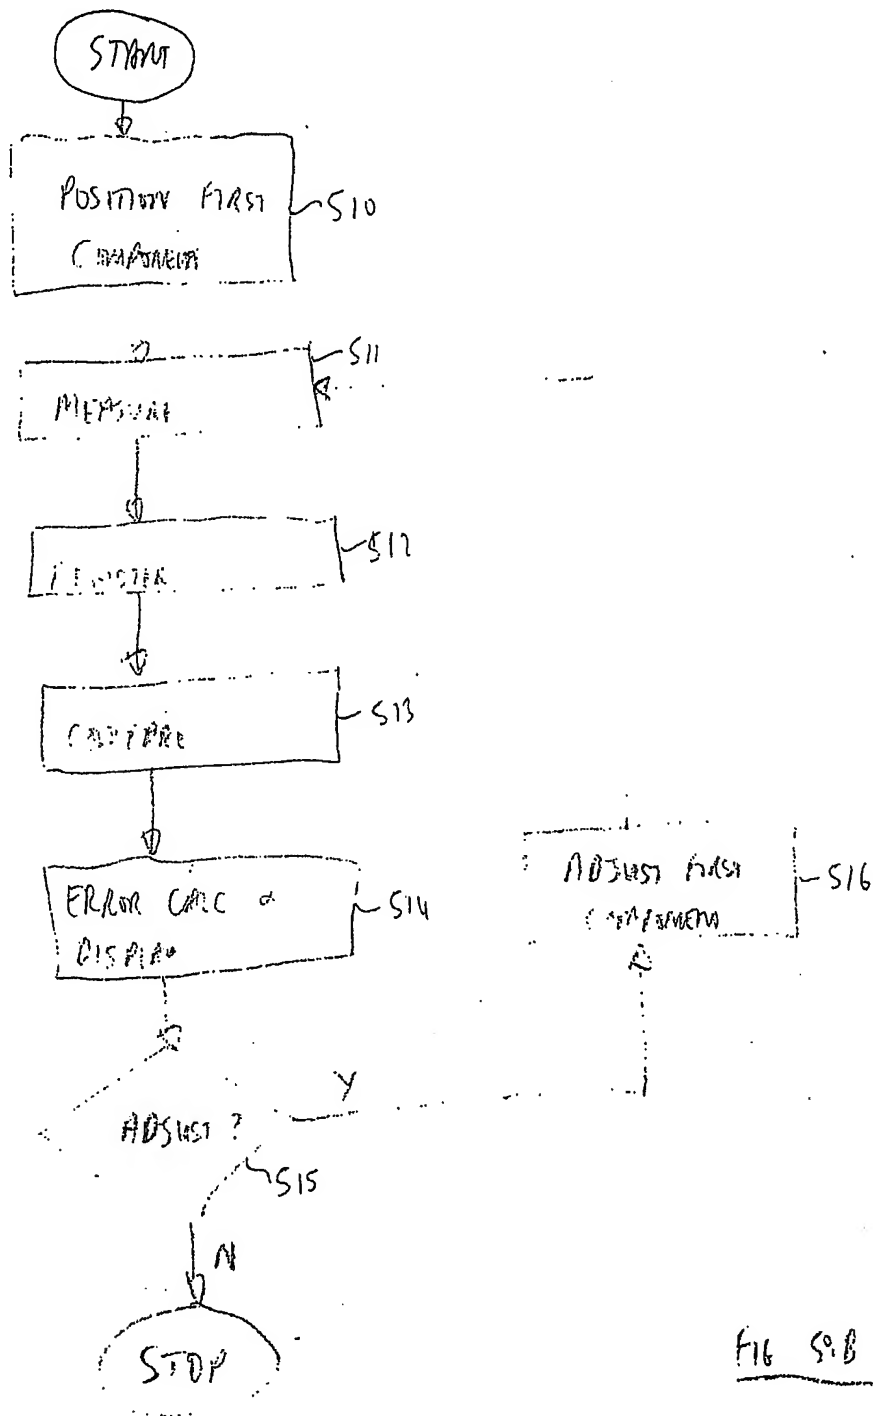 START
POSITION FIRST
COMPONENT
S10
S11
MEASURE
S12
S13
COMPARE
ERROR CALC &
DISPLAY
S14
ADJUST FIRST
COMPONENT
S16
ADJUST?
Y
S15
N
STOP
FIG